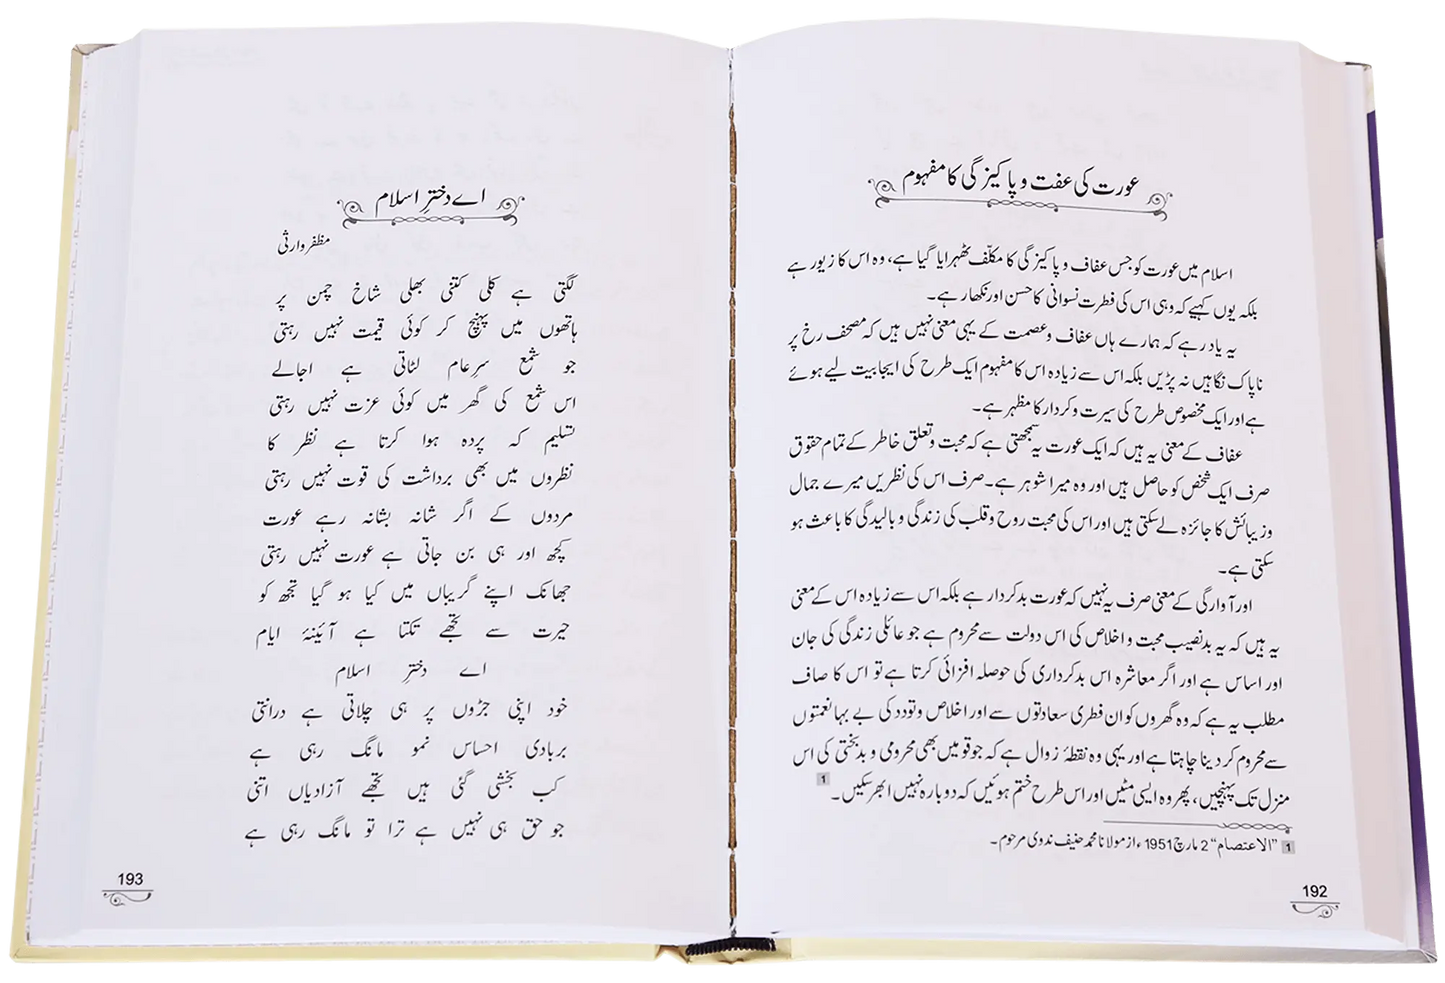 عورت کی عفت و پاکیزگی کا مفہوم
اسلام میں عورت کو جس عفاف و پاکیزگی کا مکلّف ٹھہرایا گیا ہے، وہ اس کا زیور ہے
بلکہ یوں کہیے کہ وہی اس کی فطرت نسوانی کا حسن اور نکھار ہے۔
یہ یاد رہے کہ ہمارے ہاں عفاف و عصمت کے یہی معنی نہیں ہیں کہ مصحف رخ پر
ناپاک نگاہیں نہ پڑیں بلکہ اس سے زیادہ اس کا مفہوم ایک طرح کی ایجابیت لیے ہوئے
ہے اور ایک مخصوص طرح کی سیرت و کردار کا مظہر ہے۔
عفاف کے معنی یہ ہیں کہ ایک عورت یہ سمجھتی ہے کہ محبت و تعلق خاطر کے تمام حقوق
صرف ایک شخص کو حاصل ہیں اور وہ میرا شوہر ہے۔ صرف اس کی نظریں میرے جمال
و زیبائش کا جائزہ لے سکتی ہیں اور اس کی محبت روح و قلب کی زندگی و بالیدگی کا باعث ہو
سکتی ہے۔
اور آوارگی کے معنی صرف یہ نہیں کہ عورت بدکردار ہے بلکہ اس سے زیادہ اس کے معنی
یہ ہیں کہ یہ بدنصیب محبت و اخلاص کی اس دولت سے محروم ہے جو عائلی زندگی کی جان
اور اساس ہے اور اگر معاشرہ اس بدکرداری کی حوصلہ افزائی کرتا ہے تو اس کا صاف
مطلب یہ ہے کہ وہ گھروں کو ان فطری سعادتوں سے اور اخلاص و تودد کی بے بہا نعمتوں
سے محروم کر دینا چاہتا ہے اور یہی وہ نقطۂ زوال ہے کہ جو قومیں بھی محرومی و بدبختی کی اس
منزل تک پہنچیں، پھر وہ ایسی مٹیں اور اس طرح ختم ہوئیں کہ دوبارہ نہیں ابھر سکیں۔ 1
1 ”الاعتصام“ 2 مارچ 1951ء از مولانا محمد حنیف ندوی مرحوم۔
192
اے دخترِ اسلام
مظفر وارثی
لگتی ہے کلی کتنی بھلی شاخ چمن پر
ہاتھوں میں پہنچ کر کوئی قیمت نہیں رہتی
جو شمع سرِعام لٹاتی ہے اجالے
اس شمع کی گھر میں کوئی عزت نہیں رہتی
تسلیم کہ پردہ ہوا کرتا ہے نظر کا
نظروں میں بھی برداشت کی قوت نہیں رہتی
مردوں کے اگر شانہ بشانہ رہے عورت
کچھ اور ہی بن جاتی ہے عورت نہیں رہتی
جھانک اپنے گریباں میں کیا ہو گیا تجھ کو
حیرت سے تجھے تکتا ہے آئینۂ ایام
اے دخترِ اسلام
خود اپنی جڑوں پر ہی چلاتی ہے درانتی
بربادی احساس نمو مانگ رہی ہے
کب بخشی گئی ہیں تجھے آزادیاں اتنی
جو حق ہی نہیں ہے ترا تو مانگ رہی ہے
193